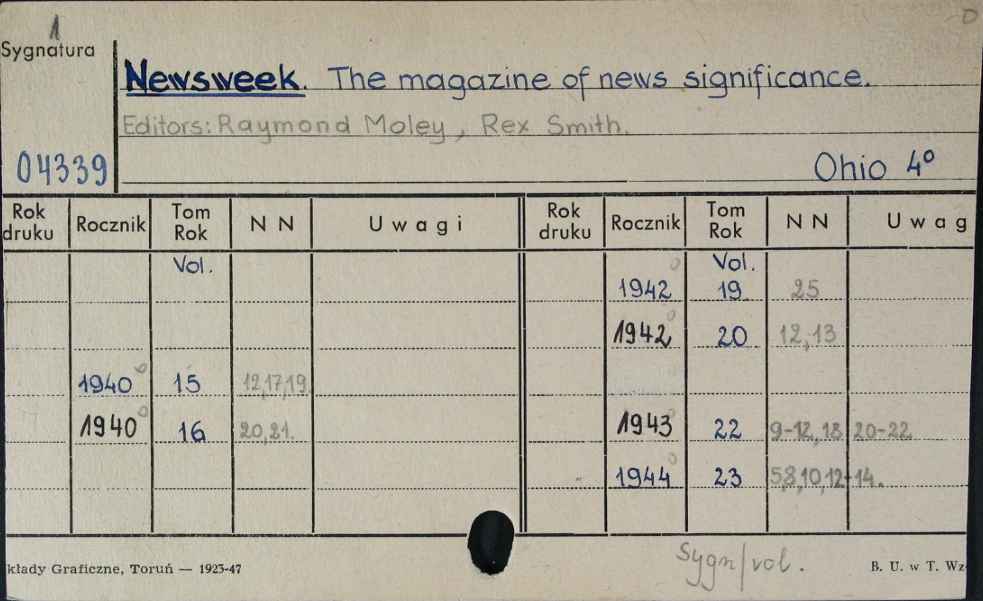 1
D
Sygnatura
Newsweek. The magazine of news significance.
Editors: Raymond Moley, Rex Smith.
04339
Ohio 4º
Rok druku Rocznik Tom Rok N N Uwagi Rok druku Rocznik Tom Rok N N Uwag
Vol. Vol.
1942 19 25
1942 20 12,13
1940 15 12,17,19.
1940 16 20,21. 1943 22 9-12,18 20-22
1944 23 5,8,10,12-14.
Sygn/vol.
kłady Graficzne, Toruń — 1923-47
B. U. w T. Wz